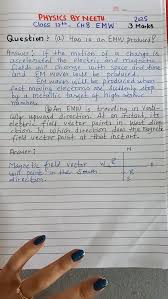 PHYSICS BY NEETU
Class 12th CH8 EMW 3 Marks
Question: (a) How is an EMW produced?
Answer: If the motion of a charge is
accelerated the electric and magnetic
fields will change with space and time
and EM waves will be produced.
EM waves will be produced when
fast moving electrons are suddenly stop
by a metallic target of high atomic
number.
An EMW is travelling in vertically
upward direction. At an instant its
electric field vector points in west
direction. In which direction does the magnetic
field vector point at that instant.
Answer: N
Magnetic field vector W E
will point in the South
direction. S